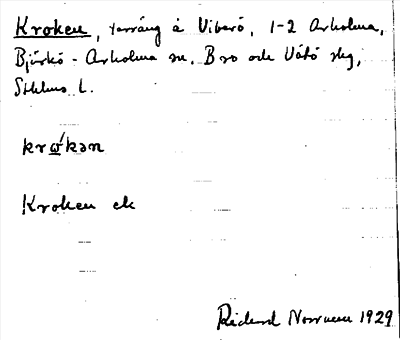 Kroken, terräng å Viberö, 1-2 Arholma,
Björkö-Arholma sn, Bro och Vätö skg,
Sthlms l.
krώkən
Kroken ek
Rickard Norrman 1929